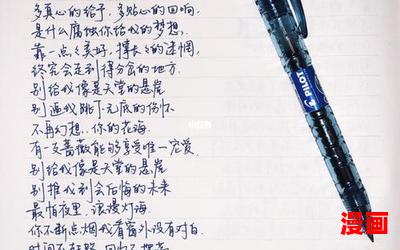 多真心的给予,多贴心的回响,
是什么腐蚀你给我的梦想,
靠一点々美好,撑长々的迷惘,
终究会走到得分食的地方.
别给我像是天堂的悬崖
别逼我跳下无底的伤怀
不再幻想,你的花海.
有一支蔷薇能够享受唯一宠爱.
别给我像是天堂的悬崖
别推我到会后悔的未来
最怕夜里,浪漫灯海.
你不断点烟我看窗外没有对白.
PILOT
漫画